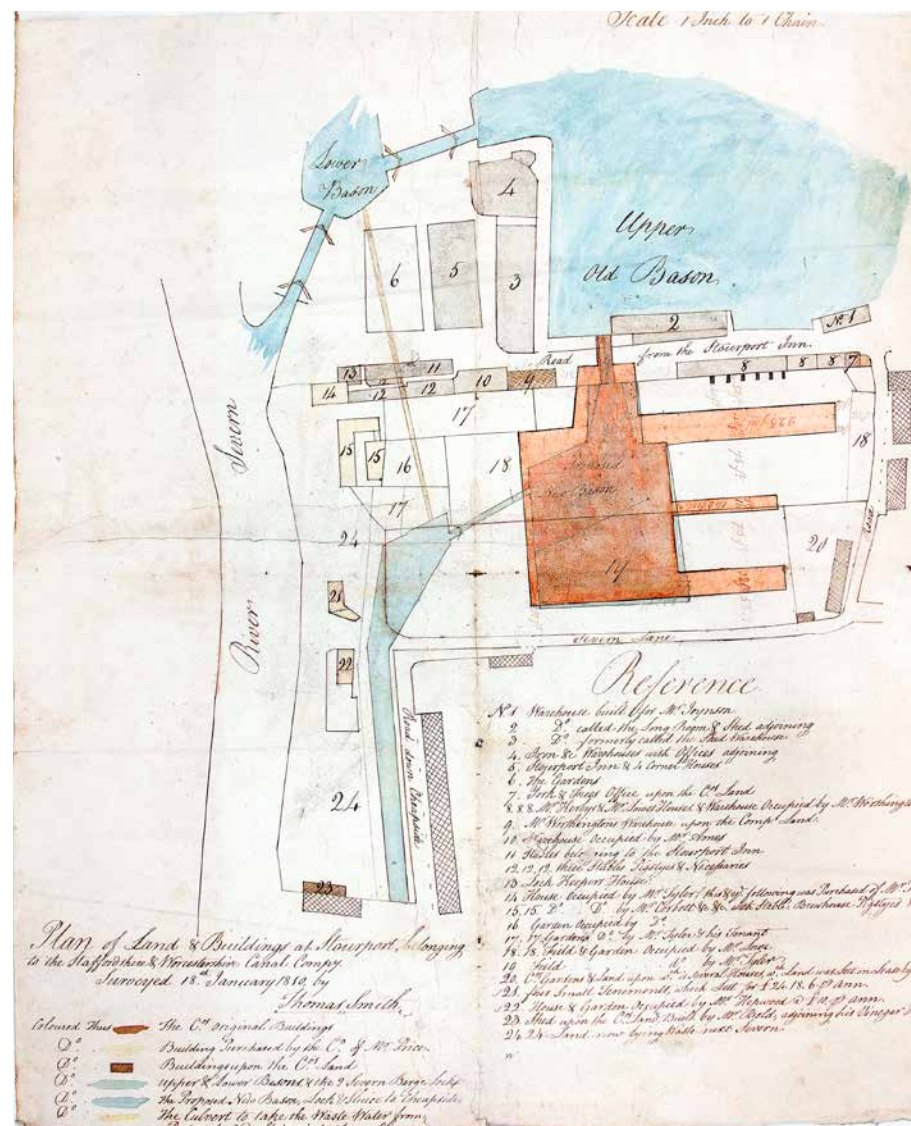 Scale 1 Inch to 1 Chain
Lower
Bason
Upper
Old Bason
4
6
5
3
2
No. 1
Road
from the Stourport Inn.
13
11
14
12
12
10
9
8
8
8
7
17
15
15
16
18
18
17
Proposed
New Bason
925
24
19
20
Road
21
Severn Lane
River
Severn
22
Road down Cheapside
24
23
Reference
No. 1 Warehouse built for Mr. Joynson
2 Do. called the Long Room & Shed adjoining
3 Do. formerly called the Shed Warehouse
4. Iron &c Warehouses with Offices adjoining
5. Stourport Inn & 4 Corner Houses
6. The Gardens
7. York & Ames Office upon the Cos. Land
8.8.8 Mr. & Mr. Ames Houses & Warehouse Occupied by Mr.
9. Mr. Worthingtons Warehouse upon the Comps. Land
10 Warehouse Occupied by Mr. Ames
11 Stables belonging to the Stourport Inn
12.12.12. three Stables Pigstyes & Necessaries
13 Lock Keepers House
14 House Occupied by Mr. Tyler, this & ye. following was Purchased of Mr.
15.15. Do. Do. by Mr. Corbett &c &c Stable Brewhouse Pigstyes
16 Garden Occupied by Do.
17. 17 Gardens Do. by Mr. Tyler & his Tenant
18. 18 Field & Garden Occupied by Mr.
19 Field do. by Mr. Tyler
20 Cos. Gardens & Land upon wch. several Houses, wch. Land was Let on Lease by
21 four Small Tenements, which Lett for £24.18.6 p ann.
22 House & Garden Occupied by Mr. Hepwood @ £10. p ann.
23 Shed upon the Cos. Land Built by Mr. Bold, adjoining his Vinegar
24.24 Land now lying Waste next Severn
Plan of Land & Buildings at Stourport, belonging
to the Staffordshire & Worcestershire Canal Compy.
Surveyed 18th. January 1810, by
Thomas Smith.
Coloured Thus The Cos. original Buildings
Do. Building Purchased by the Co. of Mr. Price
Do. Buildings upon the Cos. Land
Do. Upper & Lower Basons & the 2 Severn Barge Locks
Do. the Proposed New Bason, Lock & Sluice to Cheapside
Do. The Culvert to take the Waste Water from